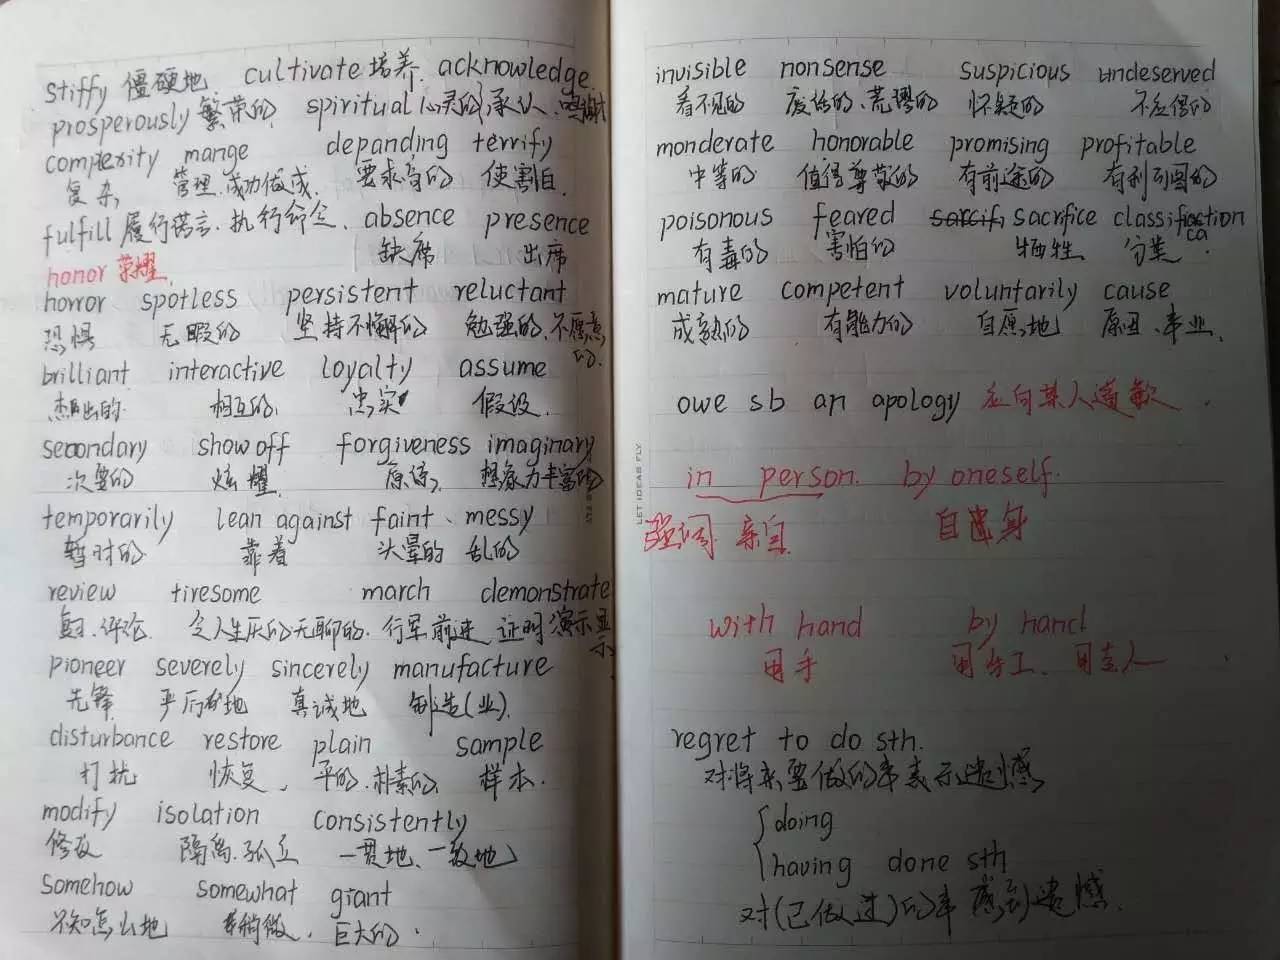 stiffy 僵硬地 cultivate 培养. acknowledge
prosperously 繁荣的 spiritual 心灵的 承认、鸣谢
complexity mange depanding terrify
复杂, 管理.成功做成. 要求高的 使害怕.
fulfill 履行诺言.执行命令、 absence presence
缺席 出席
honor 荣耀.
horror spotless persistent reluctant
恐惧 无暇的 坚持不懈的 勉强的.不愿意的.
brilliant interactive loyalty assume
杰出的 相互的 忠实 假设.
secondary show off forgiveness imaginary
次要的 炫耀 原谅, 想象力丰富的
temporarily lean against faint、messy
暂时的 靠着 头晕的 乱的
review tiresome march demonstrate
复习.评论. 令人生厌的无聊的. 行军前进 证明 演示 显示
pioneer severely sincerely manufacture
先锋 严厉地 真诚地 制造(业).
disturbance restore plain sample
打扰 恢复, 平的.朴素的 样本.
modify isolation consistently
修改 隔离.孤立 一贯地、一致地
somehow somewhat giant
不知怎么地 稍微. 巨大的.
invisible nonsense suspicious undeserved
看不见的 废话的、荒谬的 怀疑的 不应得的
monderate honorable promising profitable
中等的 值得尊敬的 有前途的 有利可图的
poisonous feared sacrfice classification
ca
有毒的 害怕的 牺牲 分类.
mature competent voluntarily cause
成熟的 有能力的 自愿地 原因、事业.
owe sb an apology 应向某人道歉.
LET IDEAS FLY
in person. by oneself.
强调 亲自. 自身
with hand by hand
用手 用手工、用专人
regret to do sth.
对将来要做的事表示遗憾
{doing
having done sth
对(已做过)的事感到遗憾.